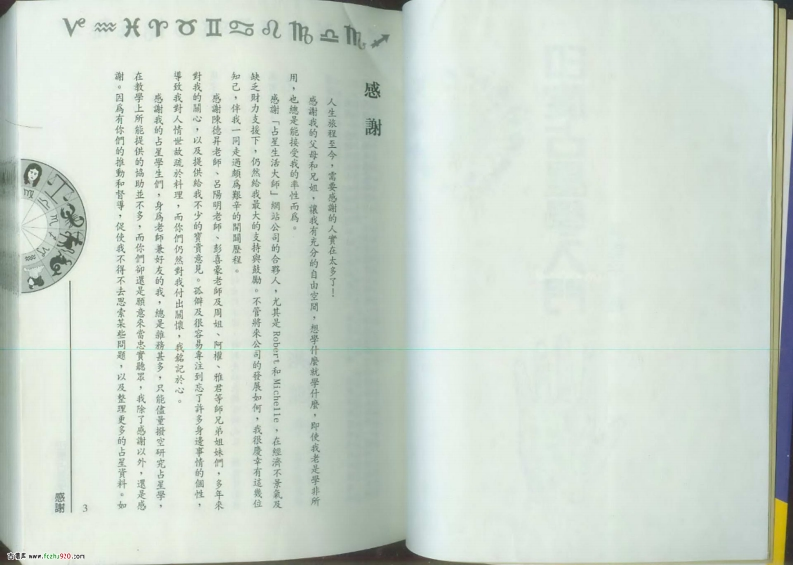 感謝
人生旅程至今，需要感謝的人實在太多了！
感謝我的父母和兄姐，讓我有充分的自由空間，想學什麼就學什麼，即使我老是學非所
用，也總是能接受我的率性而為。
感謝「占星生活大師」網站公司的合夥人，尤其是Robert和Michelle，在經濟不景氣及
缺乏財力支援下，仍然給我最大的支持與鼓勵。不管將來公司的發展如何，我很慶幸有這幾位
知己，伴我一同走過頗為艱辛的開闢歷程。
感謝陳德昇老師、呂陽明老師、彭喜豪老師及周姐、阿權、雅君等師兄弟姐妹們，多年來
對我的關心，以及提供給我不少的寶貴意見。孤僻及很容易專注到忘了許多身邊事情的個性，
導致我對人情世故疏於料理，而你們仍然對我付出關懷，我銘記於心。
感謝我的占星學生們，身為老師兼好友的我，總是雜務甚多，只能儘量撥空研究占星學，
在教學上所能提供的協助並不多，而你們卻還是願意來當忠實聽眾，我除了感謝以外，還是感
謝。因為有你們的推動和督導，促使我不得不去思索某些問題，以及整理更多的占星資料。如
感謝
3
www.fczhu920.com